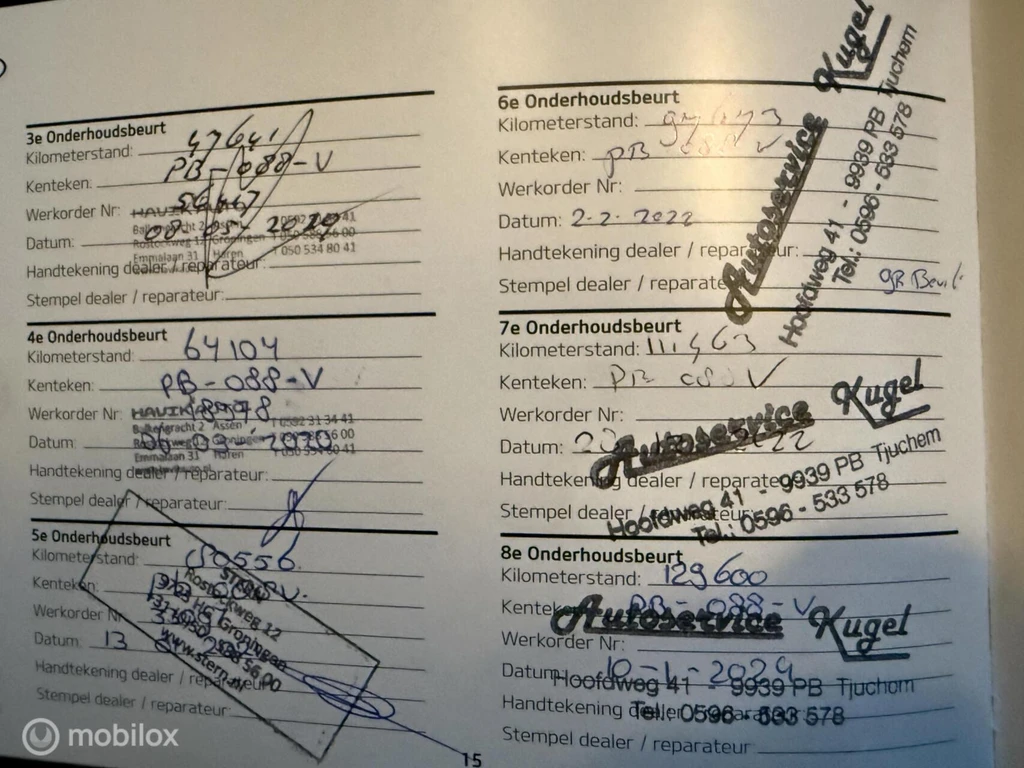 3e Onderhoudsbeurt
Kilometerstand: 47641
Kenteken: PB-088-V
Werkorder Nr:
Datum: 2020
Balkengracht 2 Assen T 0592 31 34 41
Rostockweg 12 Groningen
Emmalaan 31 Haren T 050 534 80 41
Handtekening dealer / reparateur:
Stempel dealer / reparateur:
4e Onderhoudsbeurt
Kilometerstand: 64104
Kenteken: PB-088-V
Werkorder Nr: 18978
Datum: 2020
Balkengracht 2 Assen T 0592 31 34 41
Rostockweg 12 Groningen
Emmalaan 31 Haren
Handtekening dealer / reparateur:
Stempel dealer / reparateur:
5e Onderhoudsbeurt
Kilometerstand: 80556
Kenteken:
Werkorder Nr
Datum: 13
Handtekening dealer / reparateur:
Stempel dealer / reparateur:
STERN
Rostockweg 12
9723 HG Groningen
www.stern.nl
15
6e Onderhoudsbeurt
Kilometerstand:
Kenteken: PB 088 V
Werkorder Nr:
Datum: 2-2-2022
Handtekening dealer / reparateur:
Stempel dealer / reparate
Autoservice Kugel
Hoofdweg 41 - 9939 PB Tjuchem
Tel.: 0596 - 533 578
7e Onderhoudsbeurt
Kilometerstand: 111463
Kenteken: PB 088 V
Werkorder Nr:
Datum: 20 2022
Handtekening dealer / reparateur:
Stempel dealer / reparateur:
Autoservice Kugel
Hoofdweg 41 - 9939 PB Tjuchem
Tel.: 0596 - 533 578
8e Onderhoudsbeurt
Kilometerstand: 129600
Kenteken: PB-088-V
Autoservice Kugel
Werkorder Nr:
Datum: 10-1-2024
Hoofdweg 41 - 9939 PB Tjuchem
Handtekening dealer / reparateur:
Tel.: 0596 - 533 578
Stempel dealer / reparateur
mobilox